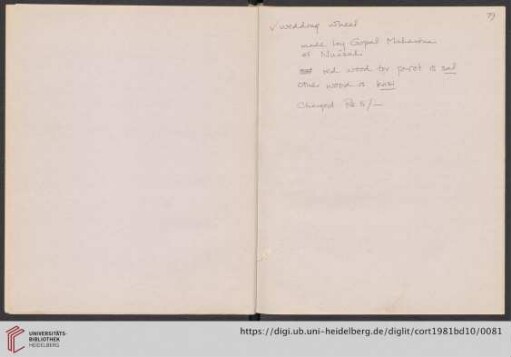 79
✓ wedding wheel
made by Gopal Maharana
of Nuasahi
red wood for pivot is sal
other wood is
Charged Rs 5/—
UNIVERSITÄTS-
BIBLIOTHEK
HEIDELBERG
https://digi.ub.uni-heidelberg.de/diglit/cort1981bd10/0081